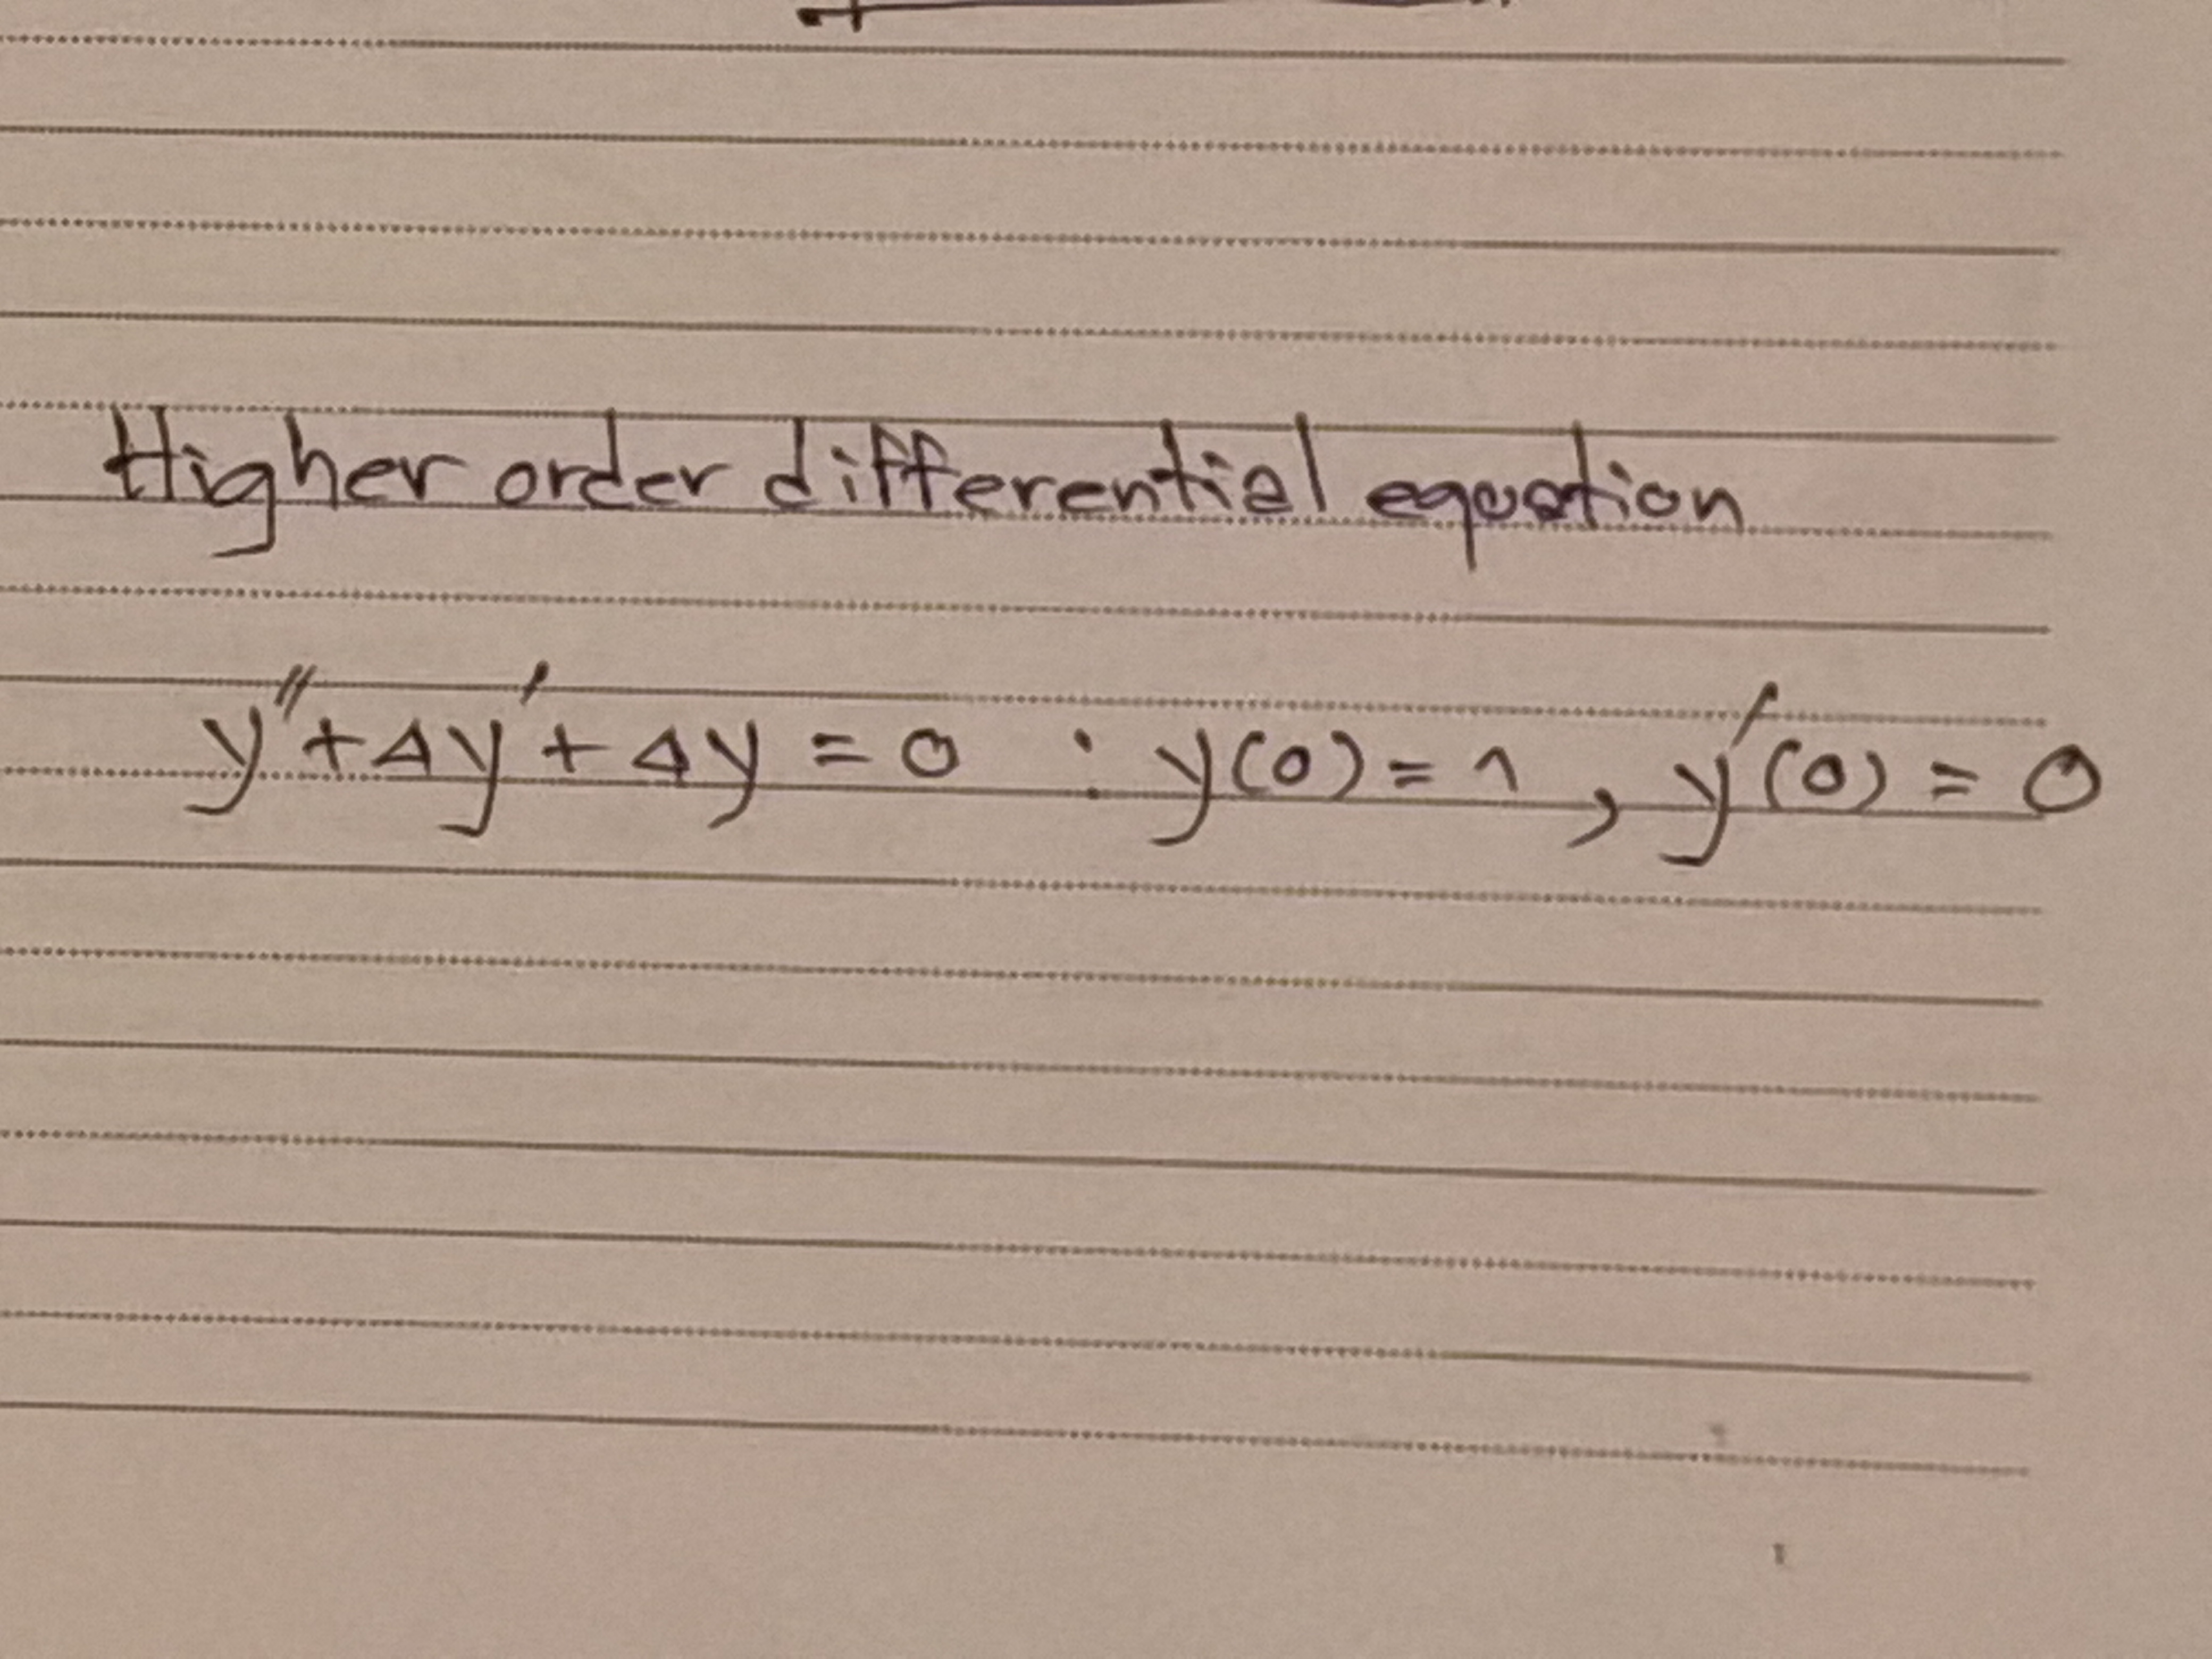 Higher order differential equation
y''+4y'+4y=0 : y(0)=1, y'(0)=0